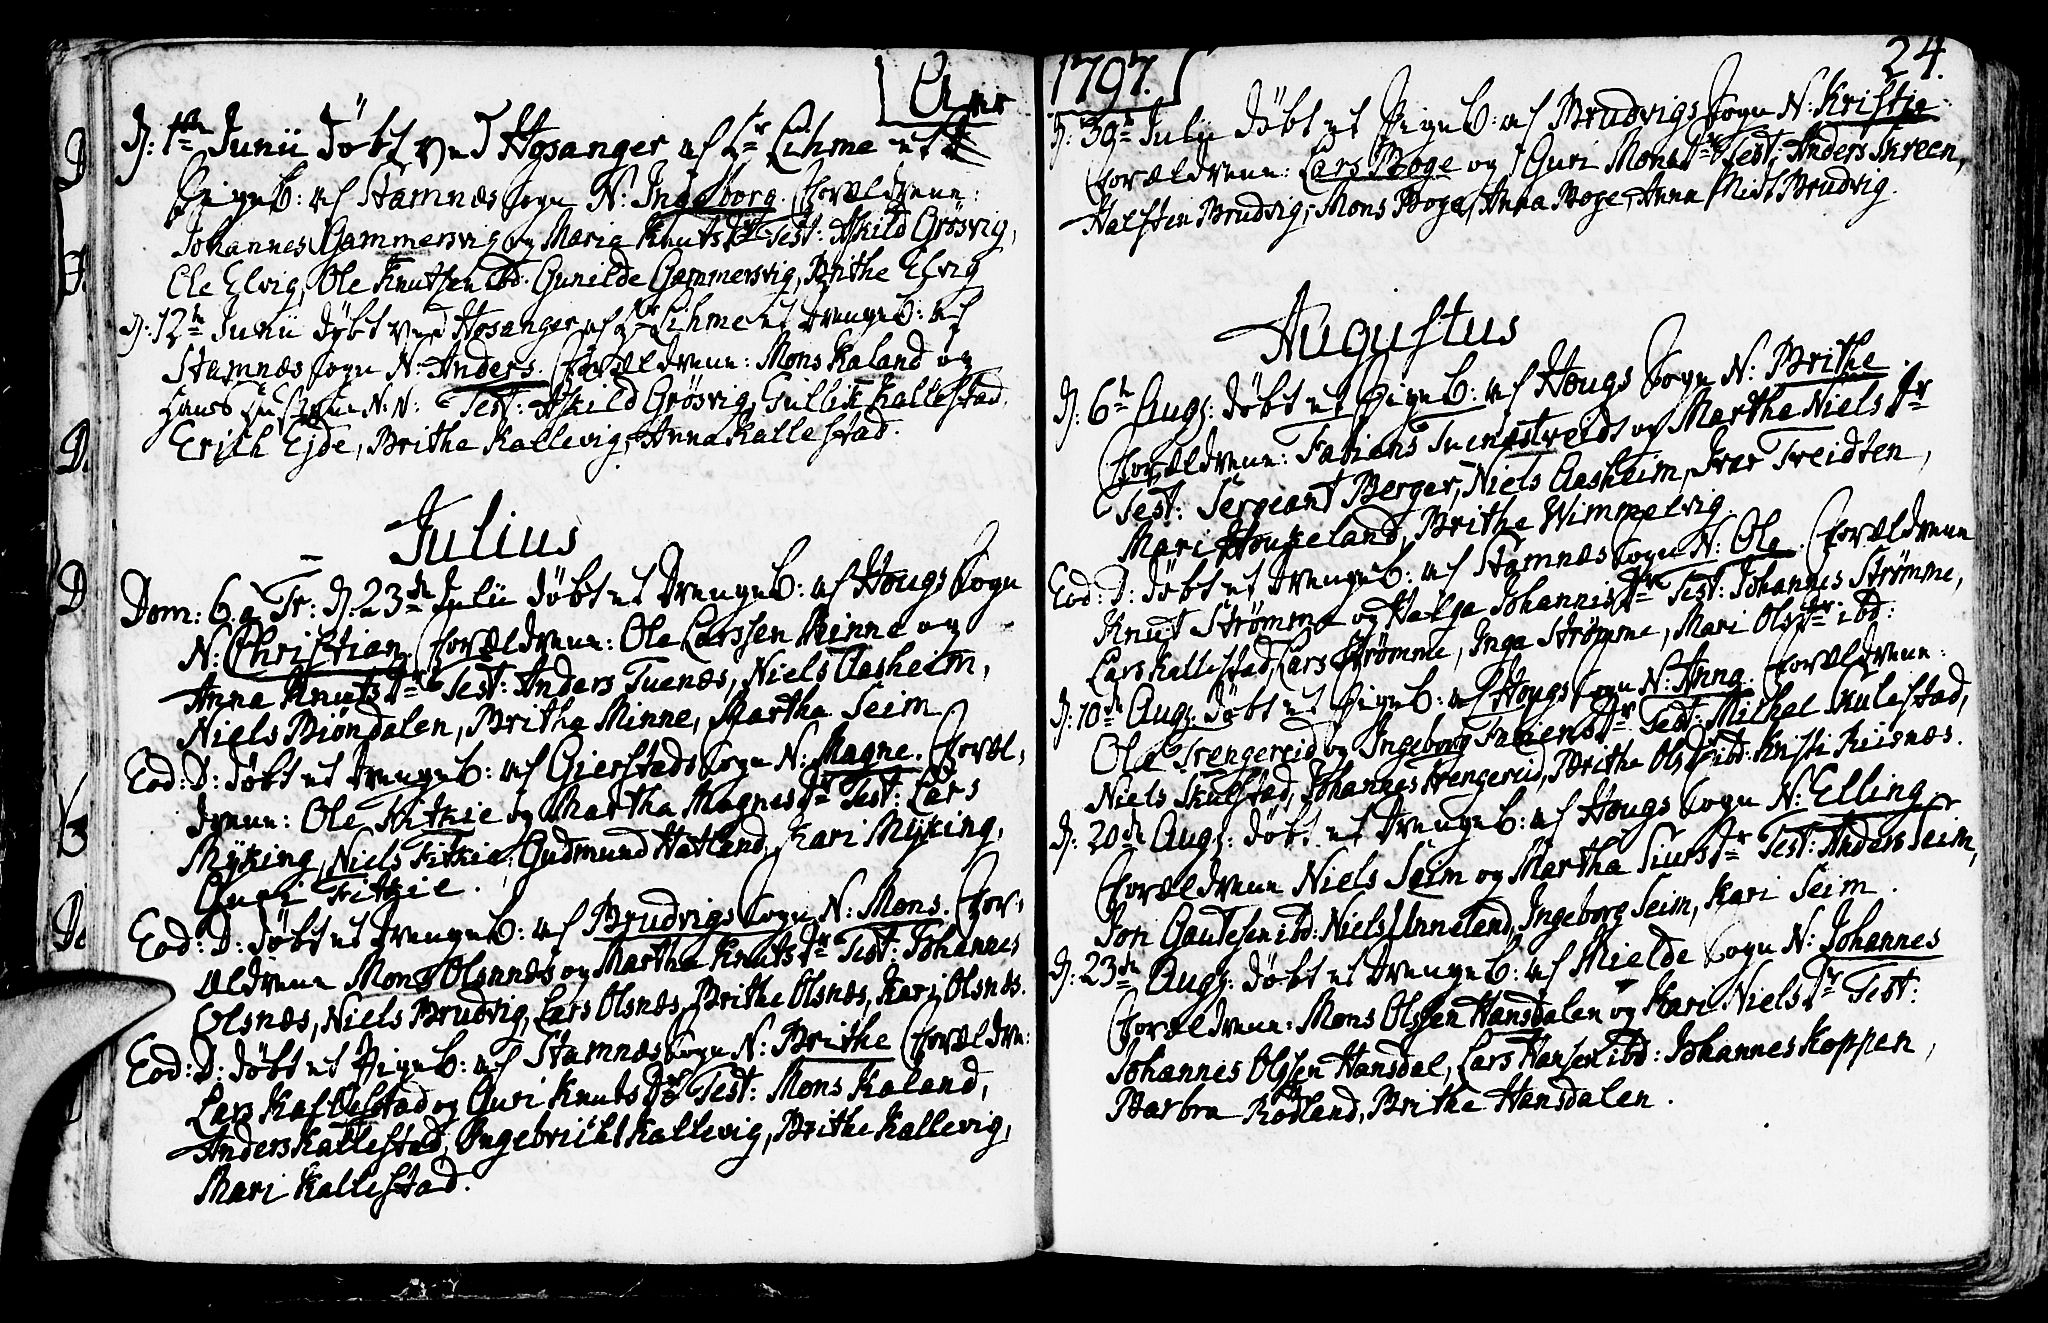 Anno
D: 1te Junii Døbt ved Hosanger af Hr Lihme et
Pigeb: af Stamnæs Sogn N: Ingeborg. Forældrene:
Johannes Gammersvig og Maria Knuts Dtr Test: Askild Grøsvig,
Ole Elvig, Ole Knutsen ibd: Gunilde Gammersvig, Brithe Elvig
D: 12te Junii Døbt ved Hosanger af Hr Lihme et Drengeb: af
Stamnæs Sogn N: Anders. Forældrene: Mons Kaland og
Hans Hustrue N: N: Test: Askild Grøsvig, Gullik Kallestad,
Erich Ejde, Brithe Kallevig, Anna Kallestad.
Julius
Dom: 6. a Tr: D: 23de Julii Døbt et Drengeb: af Hougs Sogn
N: Christian. Forældrene: Ole Larssen Minne og
Anna Knuts Dtr Test: Anders Tuenæs, Niels Aasheim,
Niels Biøndalen, Britha Minne, Martha Seim
Eod: D: Døbt et Drengeb: af Gierstads Sogn N: Magne. Foræl-
drene: Ole Fitkie og Martha Magnes Dtr Test: Lars
Myking, Niels Fitkie, Gudmund Hatland, Kari Myking,
Guri Fitkie.
Eod: D: Døbt et Drengeb: af Brudvigs Sogn N: Mons. For-
ældrene Mons Olsnæs og Martha Knuts Dtr Test: Johannes
Olsnæs, Niels Brudvig, Lars Olsnæs, Brithe Olsnæs, Kari Olsnæs.
Eod: D: Døbt et Pigeb: af Stamnæs Sogn N: Brithe Forældre:
Lars Kallestad og Guri Knuts Dtr Test: Mons Kaland,
Anders Kallestad, Ingebricht Kallevig, Brithe Kallevig,
Mari Kallestad.
1797.
24.
D: 30te Julii Døbt et Pigeb: af Brudvigs Sogn N: Kristie
Forældrene: Lars Boge og Guri Mons Dtr Test: Anders Skreen,
Halstein Brudvig, Mons Boge, Anna Boge, Anna Midt Brudvig.
Augustus
D: 6te Aug: Døbt et Pigeb: af Hougs Sogn N: Brithe.
Forældrene: Fabians Tuenæstveidt og Martha Niels Dtr
Test: Sergeant Berger, Niels Aasheim, Ivar Tveidten,
Mari Houkeland, Brithe Wimmelvig.
Eod: D: Døbt et Drengeb: af Stamnæs Sogn N: Ole. Forældrene
Knut Strømme og Helga Johannis Dtr Test: Johannes Strømme,
Lars Kallestad, Lars Strømme, Inga Strømme, Mari Ols Dtr ibd:
D: 10de Aug: Døbt et Pigeb: af Hougs Sogn N: Anna. Forældrene:
Ole Trengereid og Ingeborg Dtr Test: Mikkel Skulestad,
Niels Skulstad, Johannes Trengereid, Brithe Ols Dtr ibd: Kristi Reisnæs.
D: 20de Aug: Døbt et Drengeb: af Hougs Sogn N: Elling
Forældrene Niels Seim og Martha Siurs Dtr Test: Anders Seim,
Jon Gautesen ibd: Niels Unneland, Ingeborg Seim, Kari Seim.
D: 23de Aug: Døbt et Drengeb: af Mielde Sogn N: Johannes
Forældrene: Mons Olssen Hansdalen og Kari Niels Dtr Test:
Johannes Olssen Hansdal, Lars Hansen ibd: Johannes Koppen,
Barbra Rødland, Brithe Hansdalen.